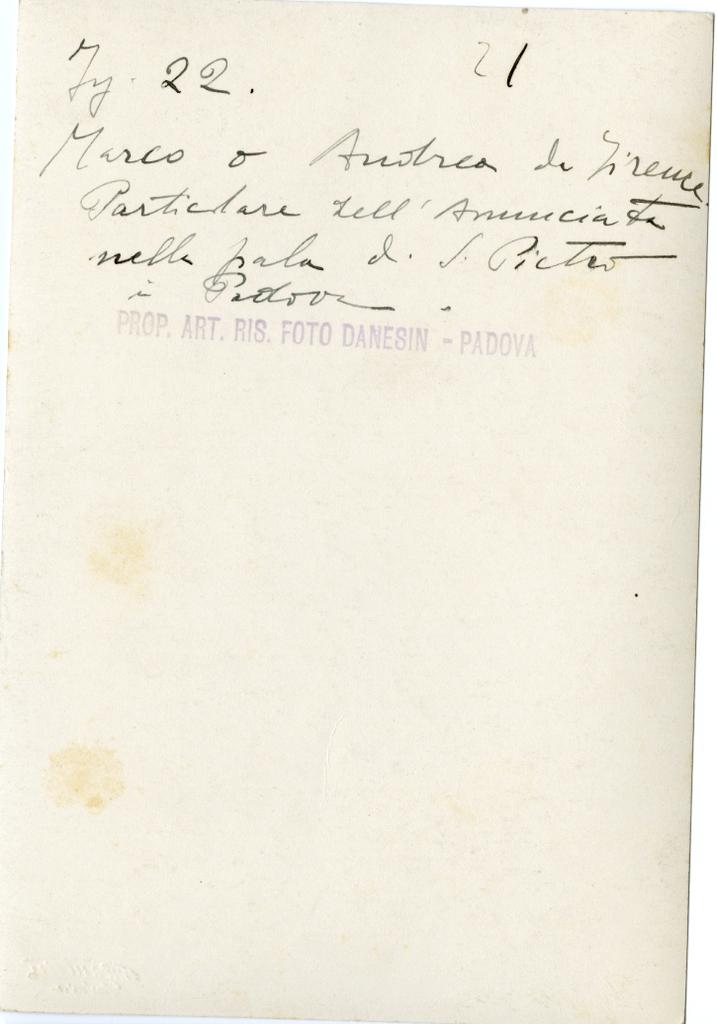 Fig. 22. 21
Marco o Andrea da Firenze.
Particolare dell'Annunciata
nella pala di S. Pietro
in Padova.
PROP. ART. RIS. FOTO DANESIN - PADOVA